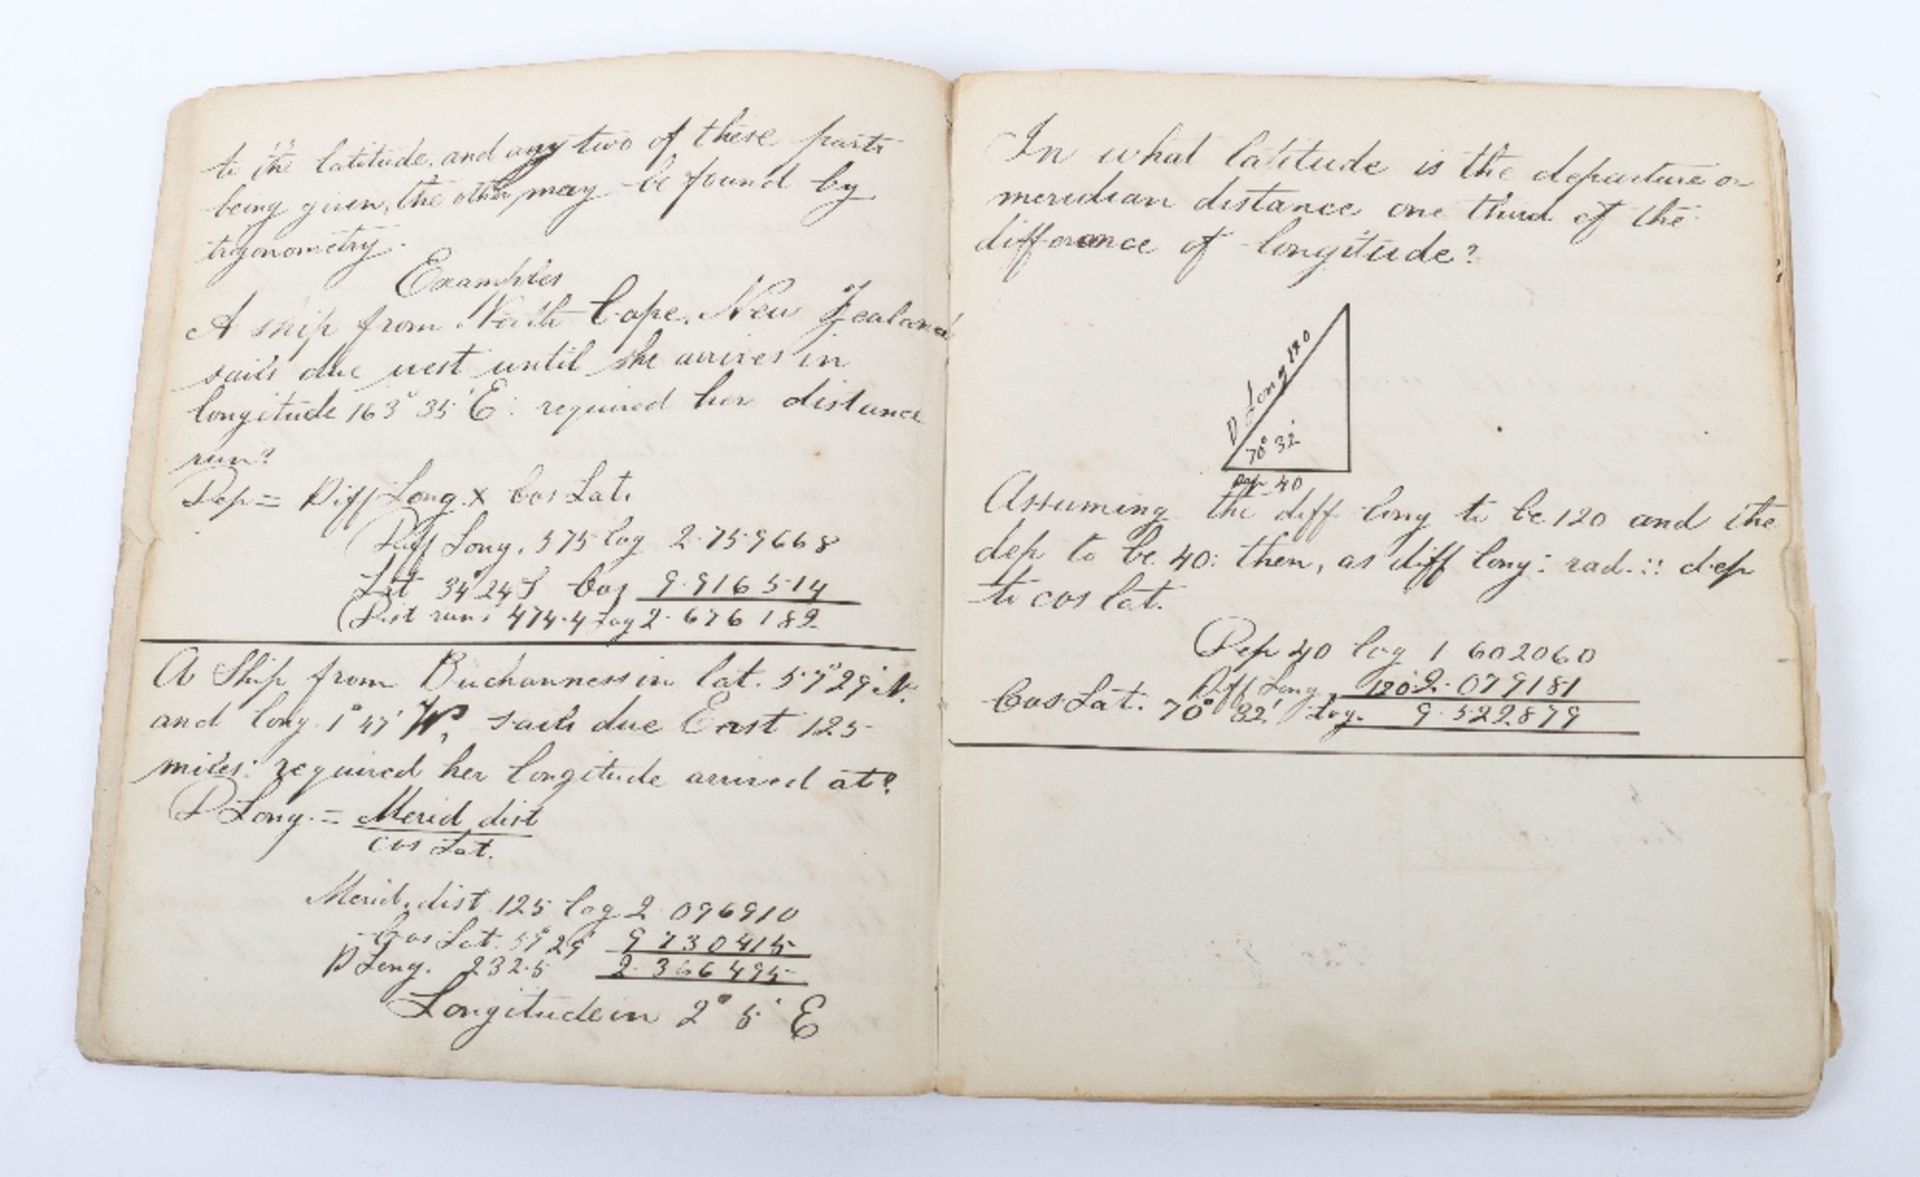 to the latitude, and any two of these parts
being given, the other may be found by
trigonometry.
Examples
A ship from North Cape, New Zealand
sails due west until she arrives in
longitude 163° 35' E: required her distance
run?
Dep = Diff Long x Cos Lat.
Diff Long. 575 log 2.759668
Lat 34° 24' S Cos 9.916514
Dist run. 474.4 log 2.676182
A Ship from Buchanness in lat. 57° 29' N.
and long. 1° 47' W, sails due East 125
miles: required her longitude arrived at?
D Long. = Merid dist
cos Lat.
Merid. dist 125 log 2 096910
Cos Lat. 57° 29' 9 730415
D Long. 232.5 2.366495
Longitude in 2° 5' E
In what latitude is the departure or
meridian distance one third of the
difference of longitude?
D Long 120
70° 32'
Dep 40
Assuming the diff long to be 120 and the
dep to be 40: then, as diff long: rad.:: dep
to cos lat.
Dep 40 log 1 602060
Diff Long 120 2.079181
Cos Lat. 70° 32' Log. 9.522879